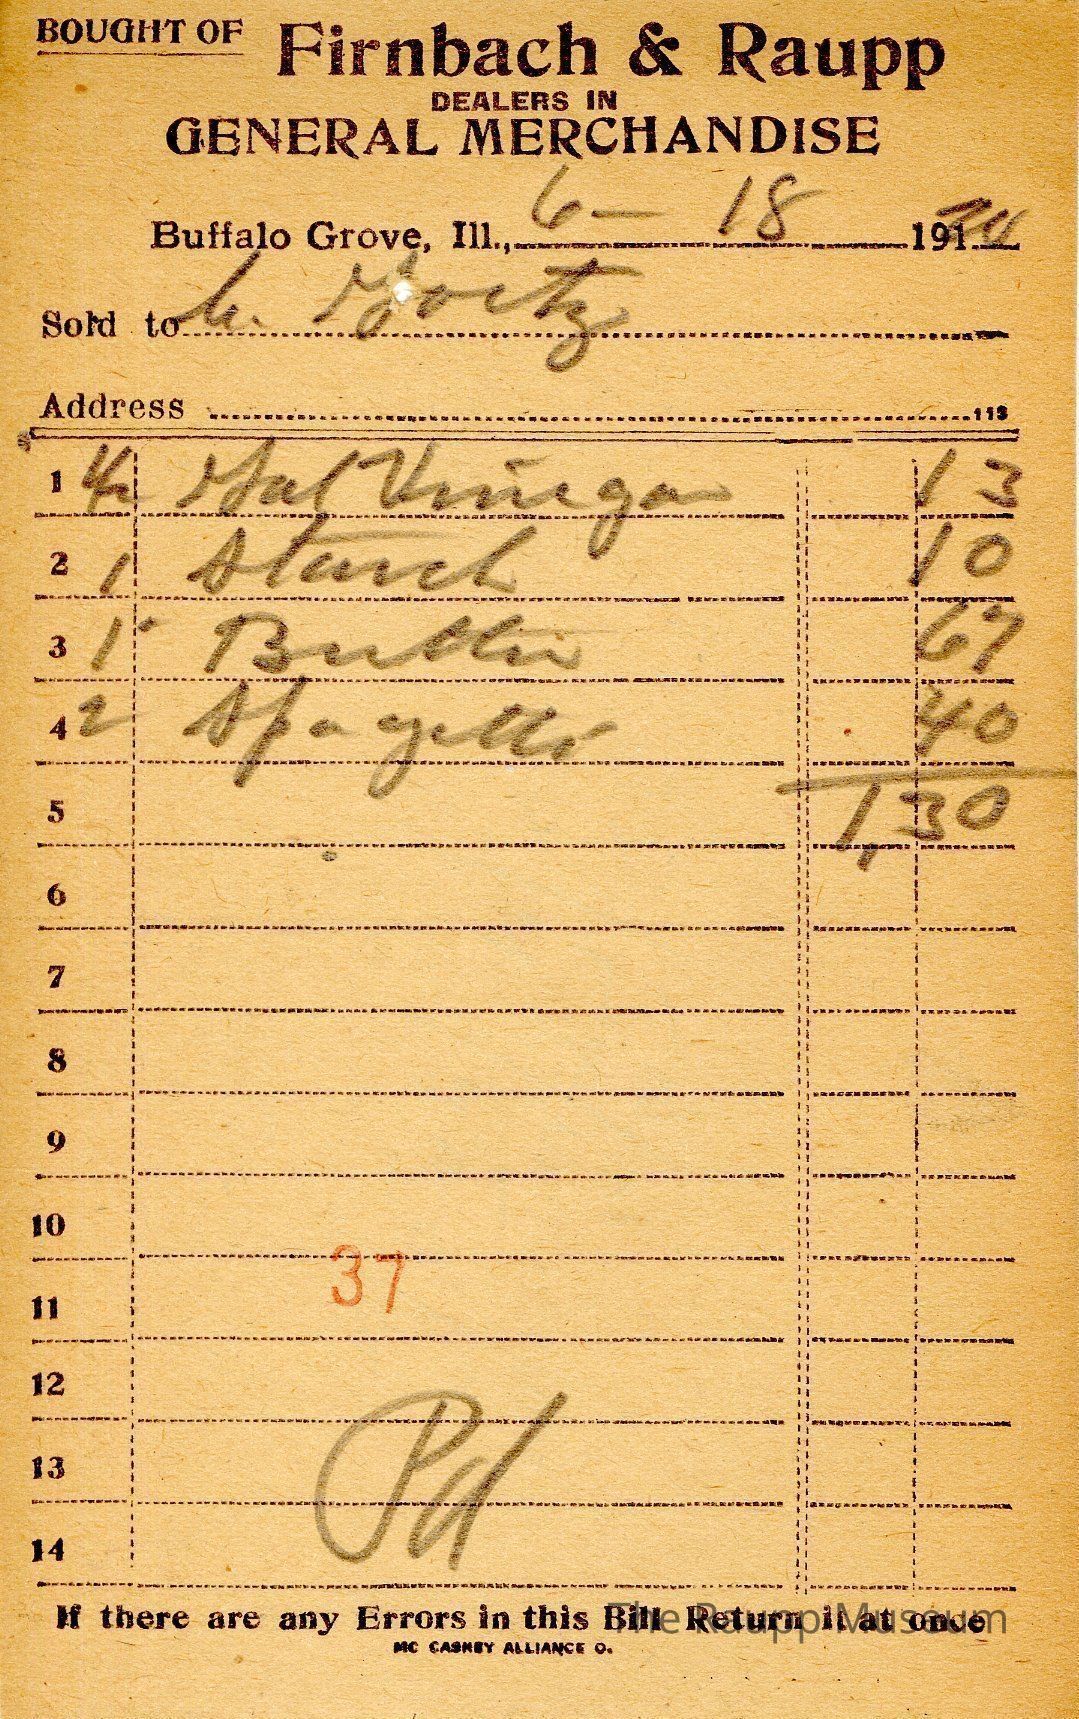 BOUGHT OF Firnbach & Raupp
DEALERS IN
GENERAL MERCHANDISE
Buffalo Grove, Ill., 6 - 18 191
Sold to Goetz
Address 113
1 1/2 Gal Vinegar 13
2 1 Starch 10
3 1 Butter 67
4 2 Spagetti 40
5 1,30
6
7
8
9
10
37
11
12
13 Pd
14
If there are any Errors in this Bill Return it at once
The Raupp Museum
MC CASKEY ALLIANCE O.